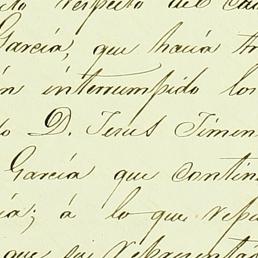 respecto del
García, que hacía
interrumpido los
D. Jesus Timen
García que contin
; á lo que repu
que su representa